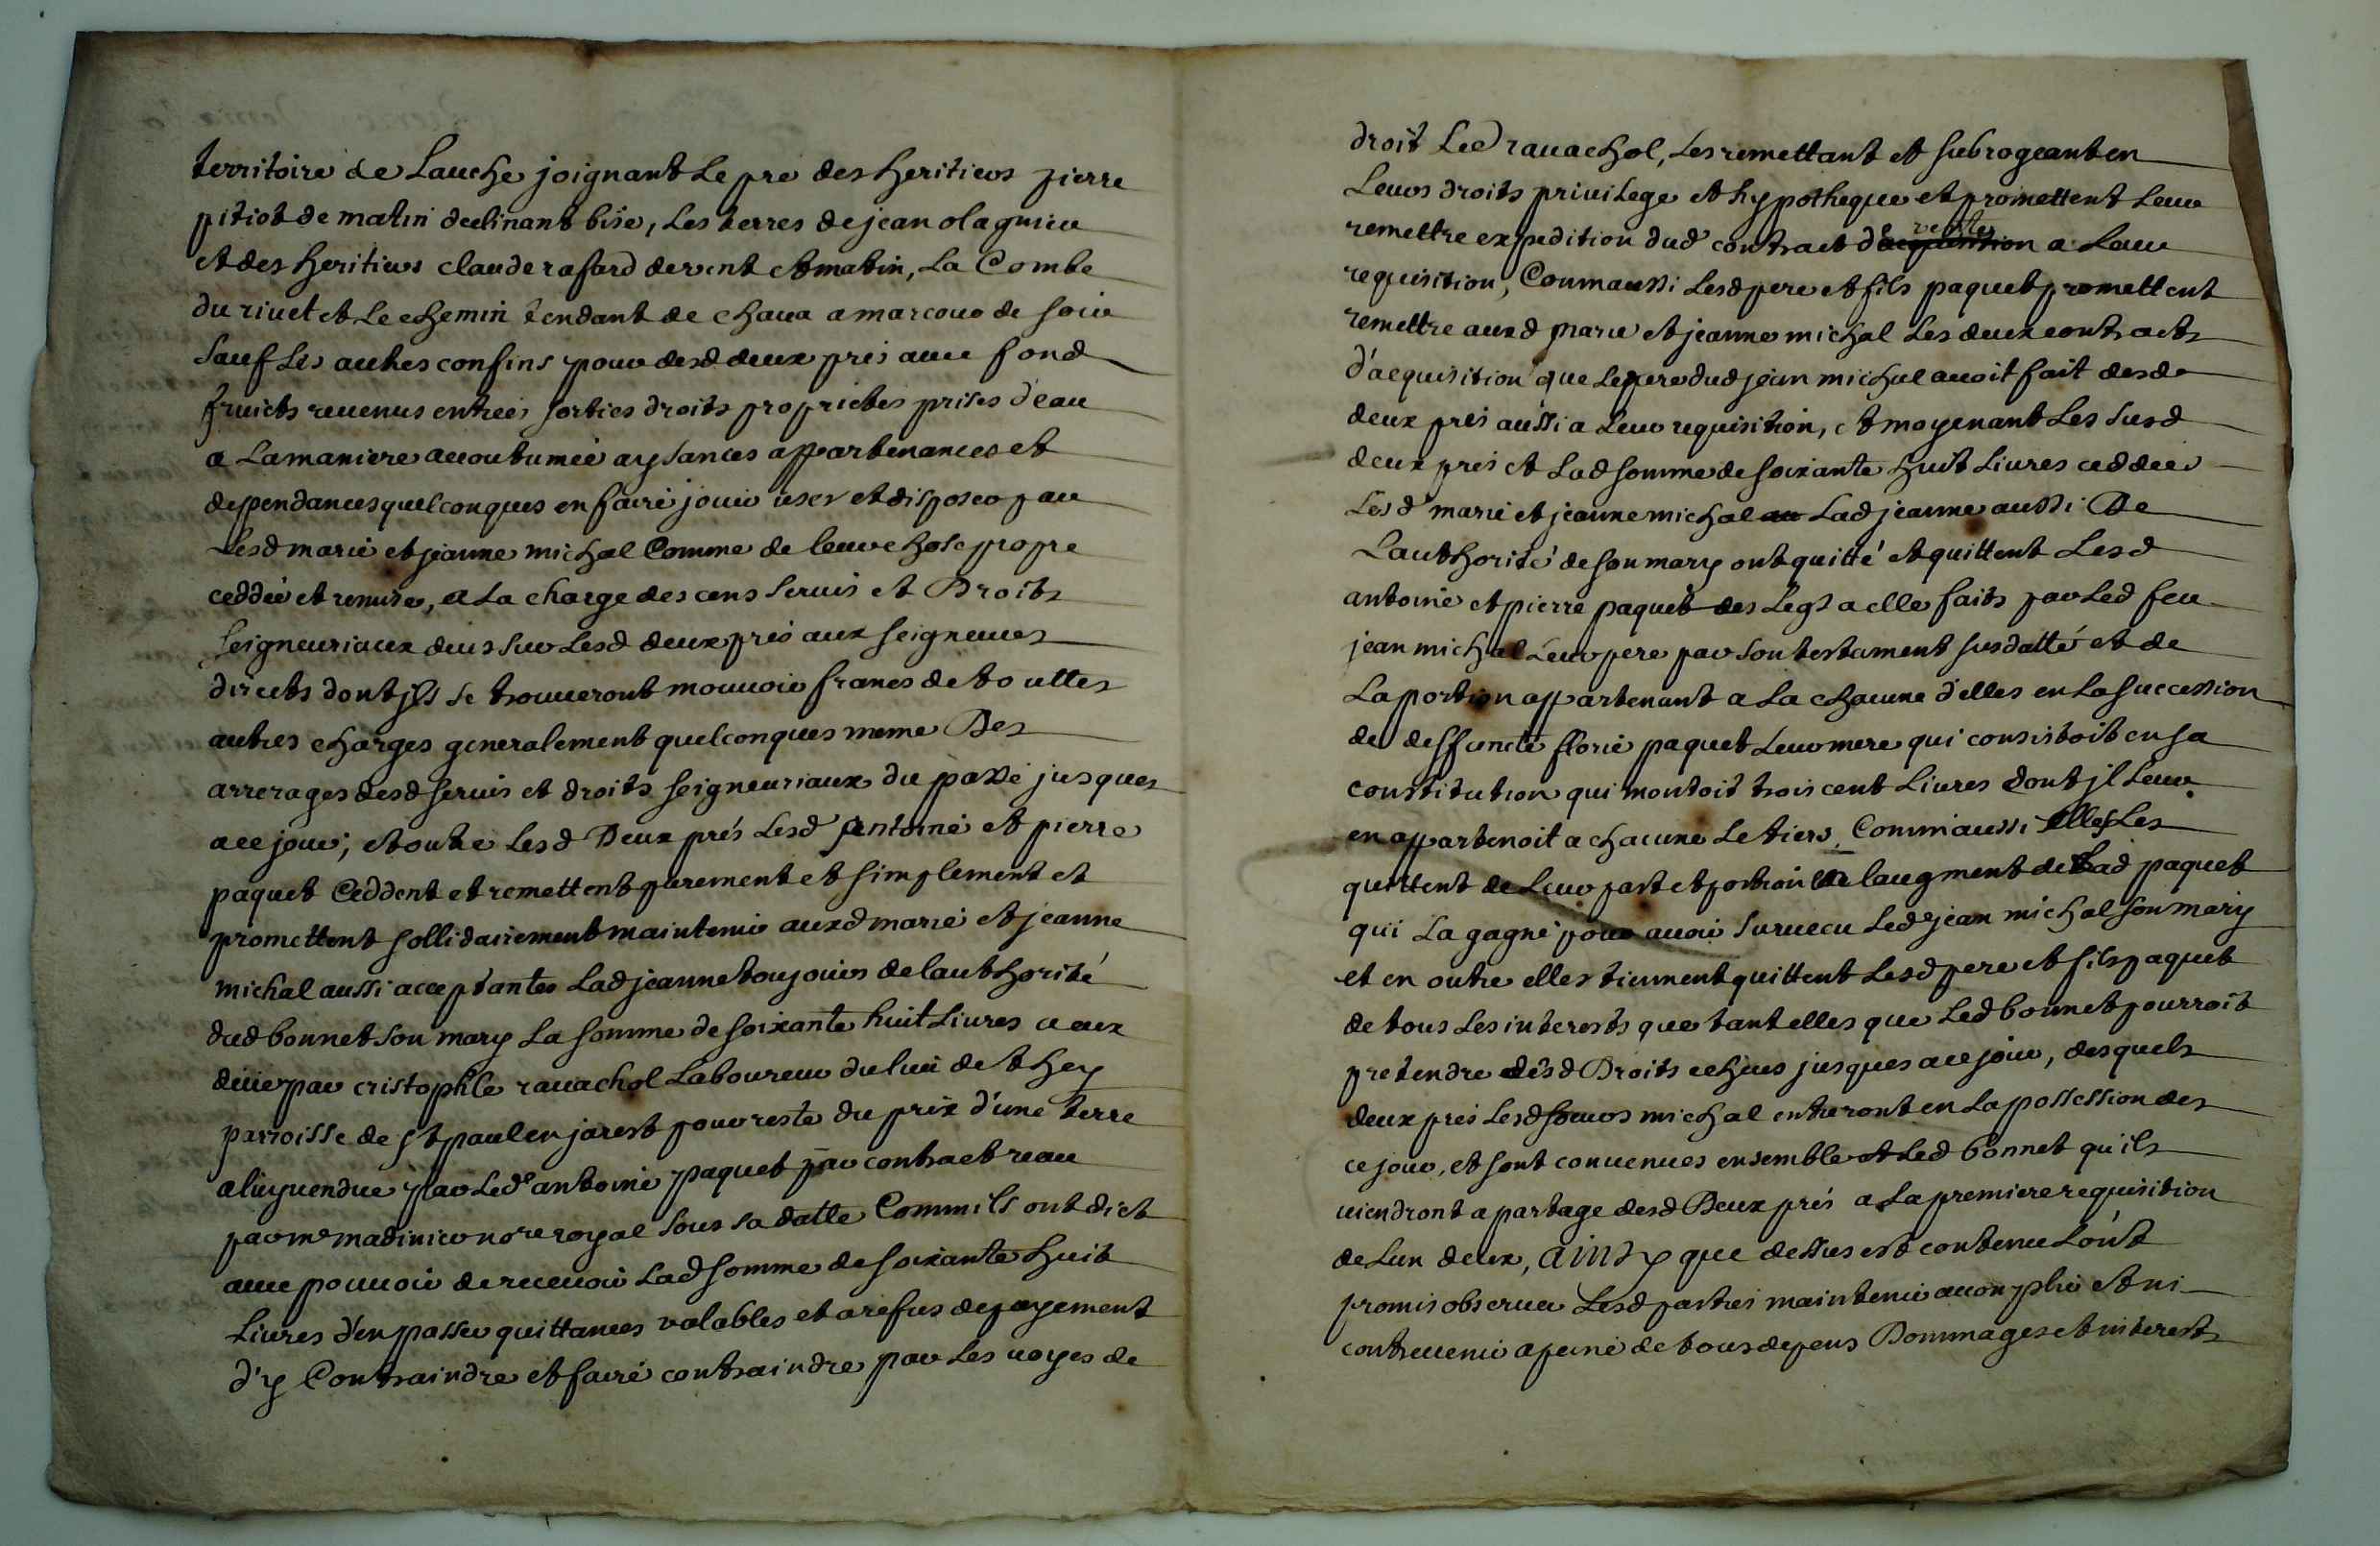 territoire de Lauche joignant Le pre des heritiers pierre
pitiot de matin declinant bise, Les terres de jean olagnieu
et des heritiers claude rafard de vent et matin, La Combe
du rivet et Le chemin tendant de chava a marcoux de soir
sauf Les autres confins pour desd deux prés avec fond
fruicts revenus entrées sorties droits proprietés prises d'eau
a La maniere accoutumée aysances appartenances et
dependances quelconques en faire jouir user et disposer par
Lesd marie et jeanne michal Comme de leur chose propre
ceddée et remise, a La charge des cens servis et Droits
seigneuriaux deus sur Lesd deux prés aux seigneurs
directs dont jls se trouveront mouvoir francs de touttes
autres charges generalement quelconques meme Des
arrerages desd servis et droits seigneuriaux du passé jusques
a ce jour; et outre Lesd Deux prés Lesd antoine et pierre
paquet Ceddent et remettent purement et simplement et
promettent sollidairement maintenir auxd marie et jeanne
michal aussi acceptantes Lad jeanne toujours de lauthorité
dud bonnet son mary La somme de soixante huit Livres a eux
deüe par cristophle ravachol Laboureur du lieu de They
parroisse de st paul en jarest pour reste du prix d'une terre
a luy vendue par Led antoine paquet par contract receu
par me madinier nore royal sous sa datte Comm ils ont dict
avec pouvoir de recevoir Lad somme de soixante huit
Livres d'en passer quittances valables et a refus de payement
d'y Contraindre et faire contraindre par Les voyes de
droit Led ravachol, Les remettant et subrogeant en
Leurs droits privilege et hypotheque et promettent Leur
remettre expedition dud contract de vente a Leur
requisition, Comm aussi Lesd pere et fils paquet promettent
remettre auxd marie et jeanne michal Les deux contracts
d'acquisition que Le pere dud jean michal avoit fait desd
deux prés aussi a Leur requisition, et moyenant Les susd
deux prés et Lad somme de soixante huit Livres ceddées
Lesd marie et jeanne michal Lad jeanne aussi De
Lauthorité de son mary ont quitté et quittent Lesd
antoine et pierre paquet des Legs a elle faits par Led feu
jean michal Leur pere par son testament susdatté et de
La portion appartenant a La chacune d'elles en La succession
de deffuncte florie paquet Leur mere qui consistoit en sa
constitution qui montoit trois cent Livres dont jl Leur
en appartenoit a chacune Le tiers, Comm aussi elles Les
quittent de Leur part et portion de laugment de Lad paquet
qui La gagné pour avoir survecu Led jean michal son mary
et en outre elles tiennent quittent Lesd pere et fils paquet
de tous Les interests que tant elles que Led bonnet pourroit
pretendre desd Droits echeus jusques a ce jour, desquels
deux prés Lesd soeurs michal entreront en La possession des
ce jour, et sont convenues ensemble et Led bonnet qu'ils
viendront a partage desd Deux prés a La premiere requisition
de Lun deux, ainsy que dessus est contenu L'ont
promis observer Lesd parties maintenir accomplir et ni
contrevenir a peine de tous depens Dommages et interests